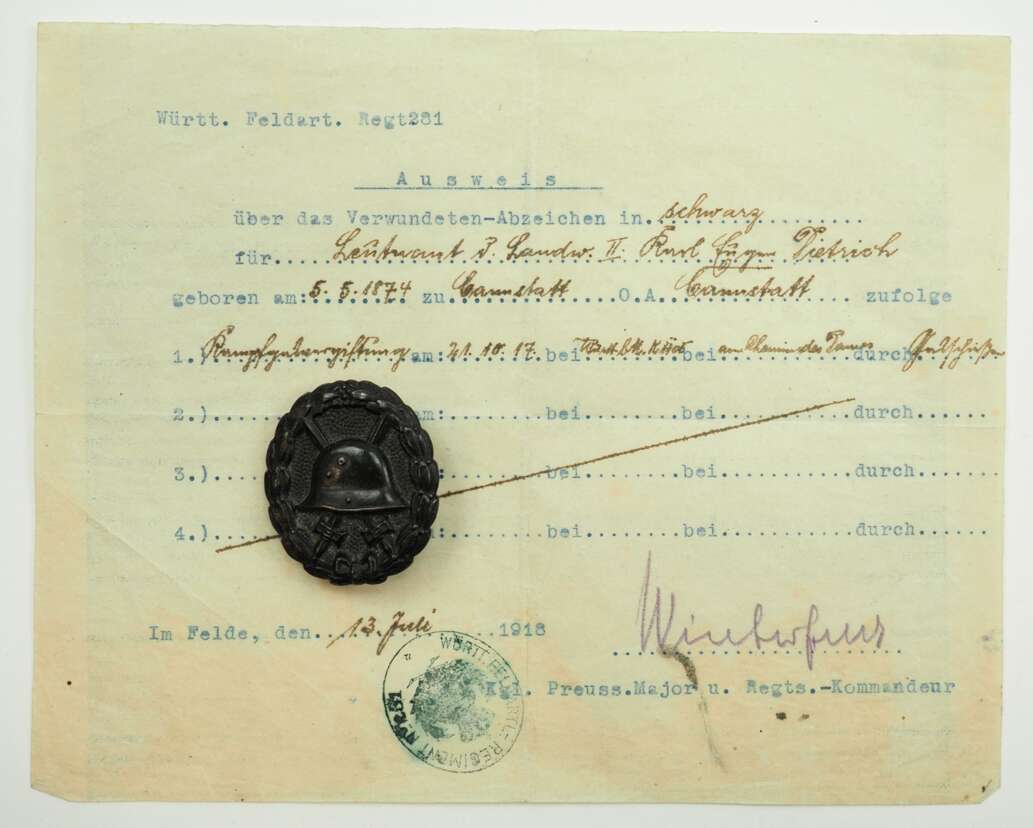 Württ. Feldart. Regt281
Ausweis
über das Verwundeten-Abzeichen in. schwarz
für.... Leutnant d. Landw. II. Karl Eugen Dietrich
geboren am: 5.5.1874 zu Cannstatt O.A. Cannstatt zufolge
1.) Kampfgasvergiftung am: 21.10.17. bei bei am Chemin des Dames durch
2.)........ am:........bei........bei........durch......
3.)........bei........bei........durch......
4.)........bei........bei........durch......
Im Felde, den.. 13. Juli ....1918
Kgl. Preuss.Major u. Regts.-Kommandeur
WÜRTT. FELDARTL-REGIMENT No 281